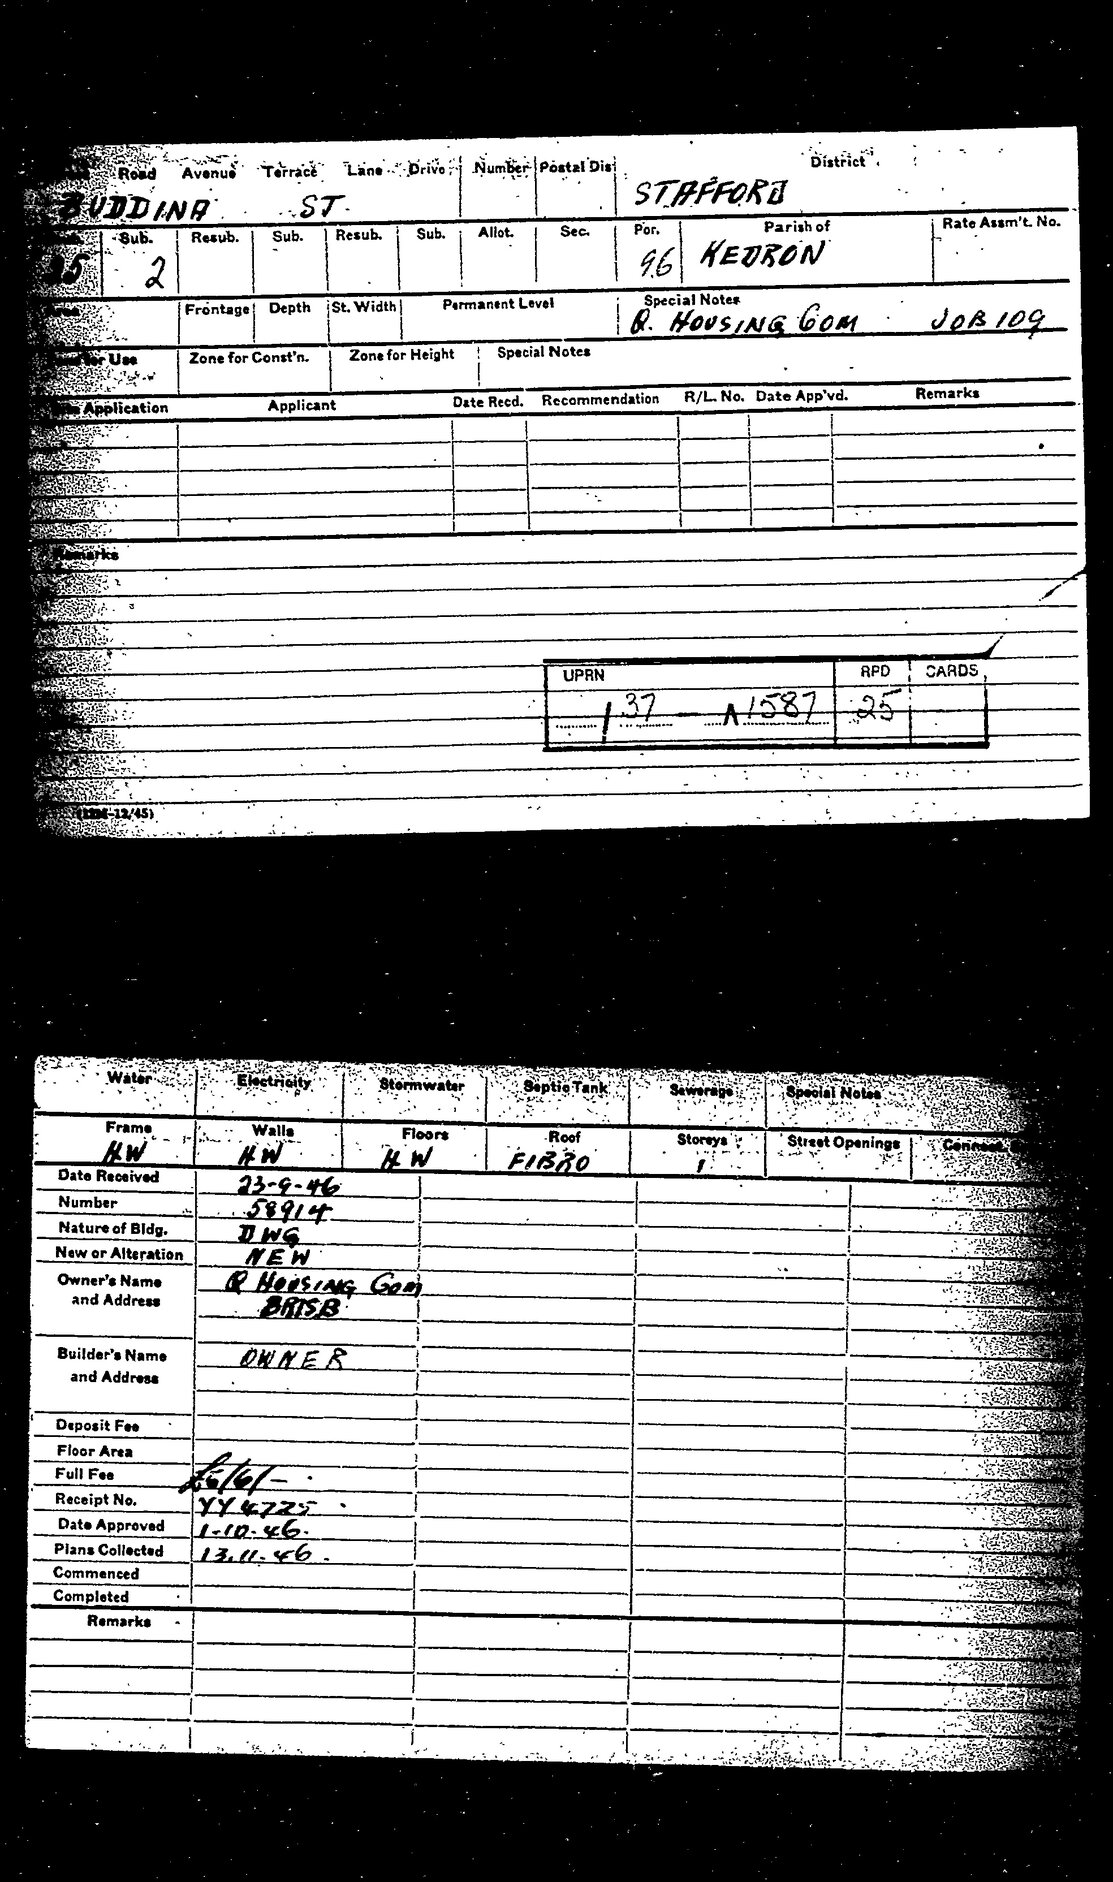 Road Avenue Terrace Lane Drive Number Postal Dis District
BUDDINA ST STAFFORD
Sub. Resub. Sub. Resub. Sub. Allot. Sec. Por. Parish of Rate Assm't. No.
2 96 KEDRON
Area Frontage Depth St. Width Permanent Level Special Notes
Q. HOUSING COM JOB 109
for Use Zone for Const'n. Zone for Height Special Notes
Application Applicant Date Recd. Recommendation R/L. No. Date App'vd. Remarks
Remarks
UPRN RPD CARDS
/ 37 — 1587 25
-12/45)
Water Electricity Stormwater Septic Tank Sewerage Special Notes
Frame Walls Floors Roof Storeys Street Openings Connect.
HW HW HW FIBRO 1
Date Received 23-9-46
Number 58914
Nature of Bldg. DWG
New or Alteration NEW
Owner's Name Q HOUSING COM
and Address BRISB
Builder's Name OWNER
and Address
Deposit Fee
Floor Area
Full Fee £5/6/-
Receipt No. YY4725
Date Approved 1-10-46.
Plans Collected 13.11.46.
Commenced
Completed
Remarks